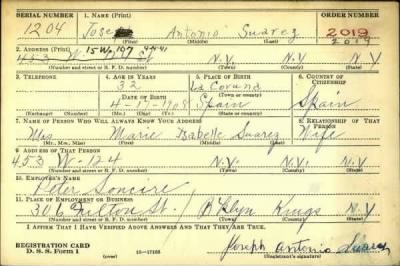 SERIAL NUMBER 1. NAME (Print) ORDER NUMBER
1204 Jose Antonio Suarez 2019
(First) (Middle) (Last) 2019
2. ADDRESS (Print) 15 W 107 4-21-41
453 W St N.Y. N.Y. N.Y.
(Number and street or R. F. D. number) (Town) (County) (State)
3. TELEPHONE 4. AGE IN YEARS 5. PLACE OF BIRTH 6. COUNTRY OF CITIZENSHIP
32 La Coruna
DATE OF BIRTH (Town or county)
4-17-1908 Spain Spain
(Exchange) (No.) (Mo.) (Day) (Yr.) (State or country)
7. NAME OF PERSON WHO WILL ALWAYS KNOW YOUR ADDRESS 8. RELATIONSHIP OF THAT PERSON
Mrs Marie Isabelle Suarez Wife
(Mr., Mrs., Miss) (First) (Middle) (Last)
9. ADDRESS OF THAT PERSON
453 W-124 N.Y. N.Y. N.Y.
(Number and street or R. F. D. number) (Town) (County) (State)
10. EMPLOYER'S NAME
Peter
11. PLACE OF EMPLOYMENT OR BUSINESS
306 Fulton St. B'klyn Kings N.Y.
(Number and street or R. F. D. number) (Town) (County) (State)
I AFFIRM THAT I HAVE VERIFIED ABOVE ANSWERS AND THAT THEY ARE TRUE.
REGISTRATION CARD
D. S. S. Form 1 (over) 16-17105 Joseph Antonio Suarez
(Registrant's signature)